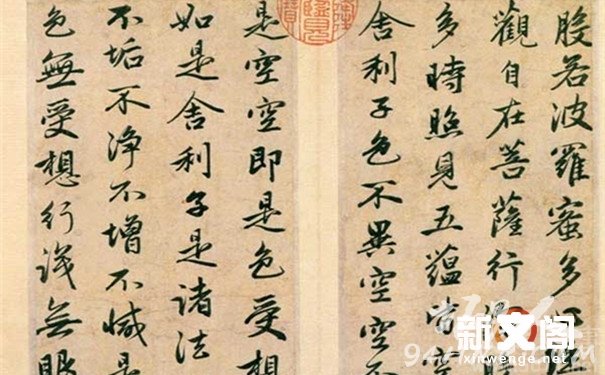 般若波羅蜜多
觀自在菩薩行
多時照見五蘊皆空
舍利子色不異空空不
是空空即是色受想
如是舍利子是諸法
不垢不淨不增不減是
色無受想行識無眼
新文阁
ixinwenge.net